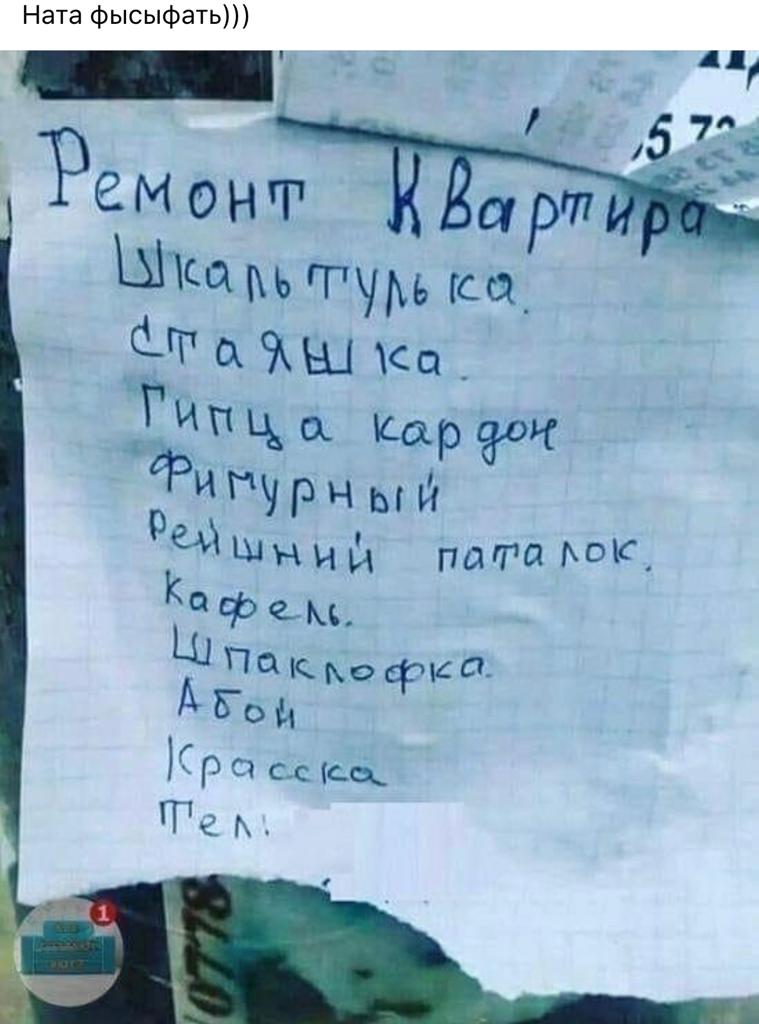 Ната фысыфать)))
5 7
Ремонт Квартира
Шкальтулька.
Стаяшка.
Гипца кардон
Фигурный
Рейшний паталок.
Кафель.
Шпаклофка.
Абой
Красска
Тел:
1
0778